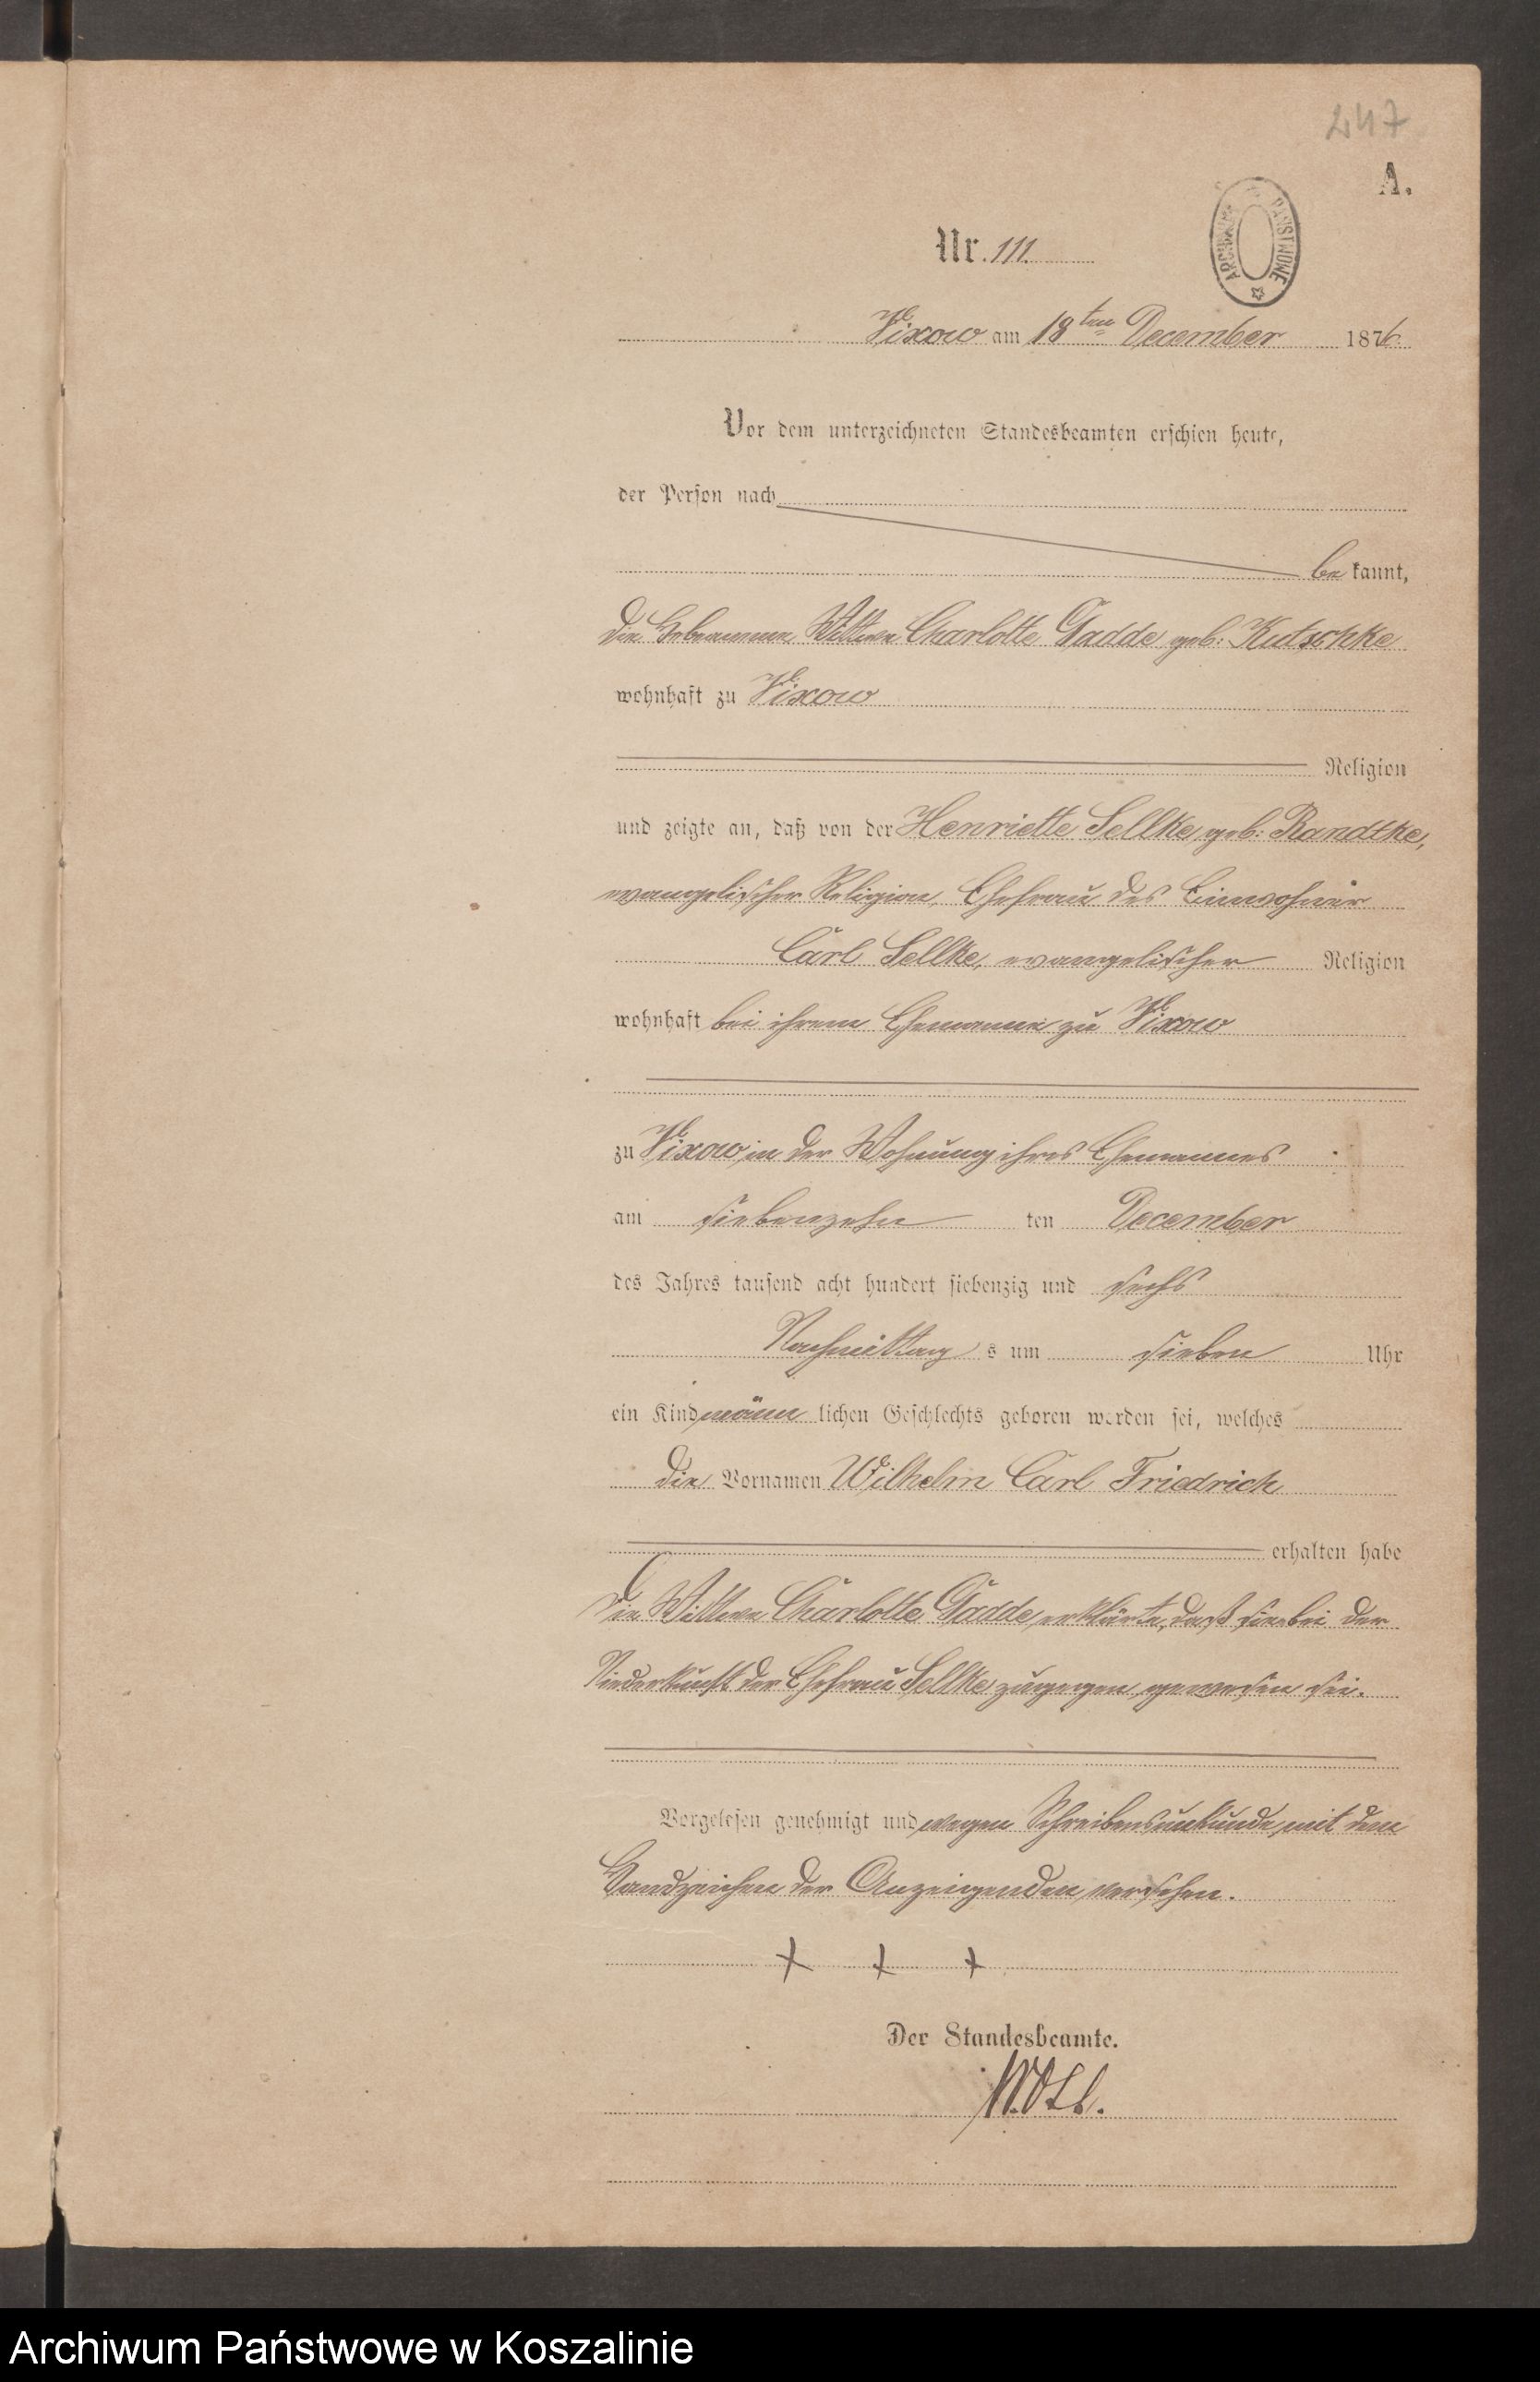 247
A.
ARCHIWUM PAŃSTWOWE
Nr. 111.
Vixow am 18ten December 1876
Vor dem unterzeichneten Standesbeamten erschien heute,
der Person nach
be kannt,
die Hebeamme, Wittwe Charlotte Gadde geb: Kutschke
wohnhaft zu Vixow
Religion
und zeigte an, daß von der Henriette Sellke geb: Randtke,
evangelischer Religion, Ehefrau des Einwohner
Carl Sellke, evangelischer Religion
wohnhaft bei ihrem Ehemanne zu Vixow
zu Vixow in der Wohnung ihres Ehemannes
am siebenzehn ten December
des Jahres tausend acht hundert siebenzig und sechs
Nachmittag s um sieben Uhr
ein Kind männ lichen Geschlechts geboren worden sei, welches
die Vornamen Wilhelm Carl Friedrich
erhalten habe
Die Wittwe Charlotte Gadde erklärte, daß sie bei der
Niederkunft der Ehefrau Sellke zugegen gewesen sei.
Vorgelesen genehmigt und wegen Schreibensunkunde mit dem
Handzeichen der Anzeigenden versehen.
+ + +
Der Standesbeamte.
Archiwum Państwowe w Koszalinie